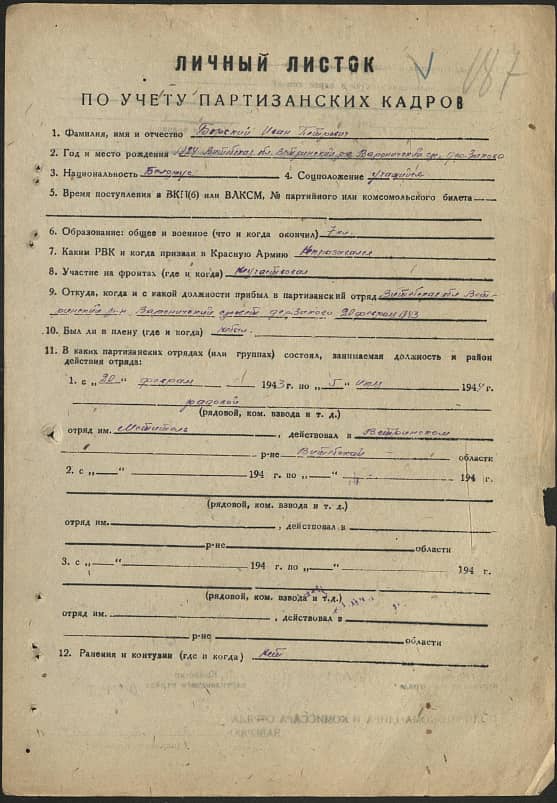 187
ЛИЧНЫЙ ЛИСТОК
ПО УЧЕТУ ПАРТИЗАНСКИХ КАДРОВ
1. Фамилия, имя и отчество Борский Иван Петрович
2. Год и место рождения Витебская обл. Ветринский р-н
3. Национальность Белорус 4. Соцположение учащийся
5. Время поступления в ВКП(б) или ВЛКСМ, № партийного или комсомольского билета
6. Образование: общее и военное (что и когда окончил) 7 кл.
7. Каким РВК и когда призван в Красную Армию Непризывался
8. Участие на фронтах (где и когда) Неучаствовал
9. Откуда, когда и с какой должности прибыл в партизанский отряд Витебская обл. Вет-
ринский р-н. 20 феврал 1943
10. Был ли в плену (где и когда)
11. В каких партизанских отрядах (или группах) состоял, занимаемая должность и район
действия отряда:
1. с „20" феврал 1943 г. по „5" июл 1944 г.
рядовой
(рядовой, ком. взвода и т. д.)
отряд им. Мститель, действовал в Ветринском
р-не Витебской области
2. с „ " 194 г. по „ " 194 г.
(рядовой, ком. взвода и т. д.)
отряд им. , действовал в
р-не области
3. с „ " 194 г. по „ " 194 г.
(рядовой, ком. взвода и т.д.)
отряд им. , действовал в
р-не области
12. Ранения и контузии (где и когда) нет